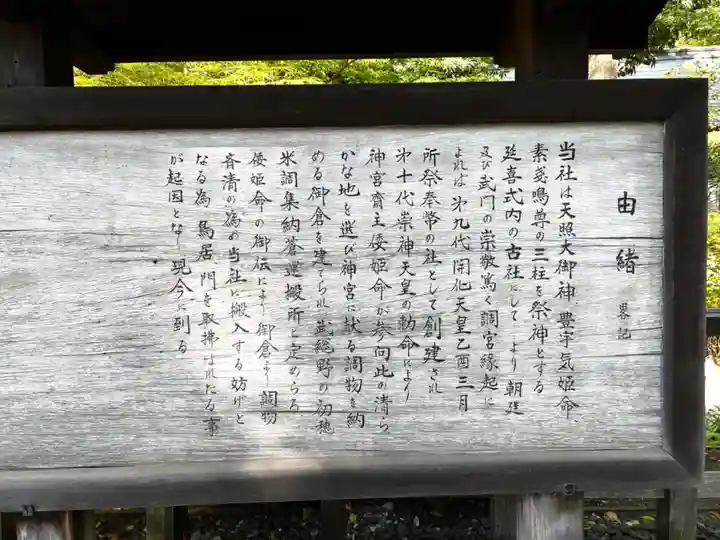 由緒 畧記
当社は天照大御神、豊宇気姫命、
素戔鳴尊の三柱を祭神とする
延喜式内の古社にして より 朝廷
及び武門の崇敬篤く調宮縁起に
よれば 第九代 開化天皇乙酉三月
所祭奉幣の社として創建され
第十代崇神天皇の勅命により
神宮斎主倭姫命が参向此の清ら
かな地を選び神宮に献る調物を納
める御倉を建てられ 武総野の初穂
米調集納蒼運搬所と定めらる
倭姫命の御伝により御倉より調物
斉清の為め当社に搬入する妨げと
なる為 鳥居 門を取拂はれたる事
が起因となり現今に到る